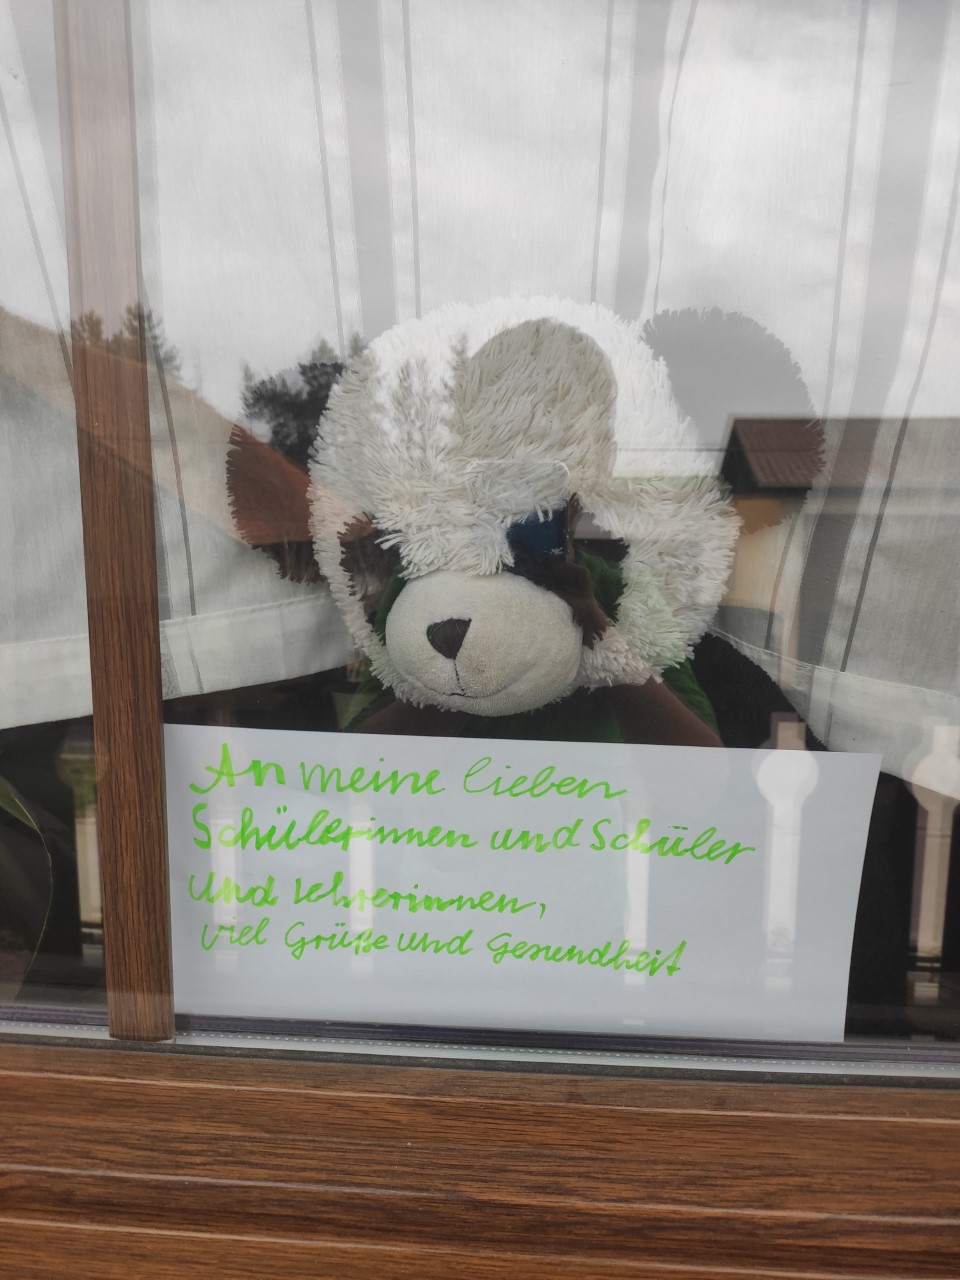 An meine lieben
Schülerinnen und Schüler
und Lehrerinnen,
viel Grüße und Gesundheit